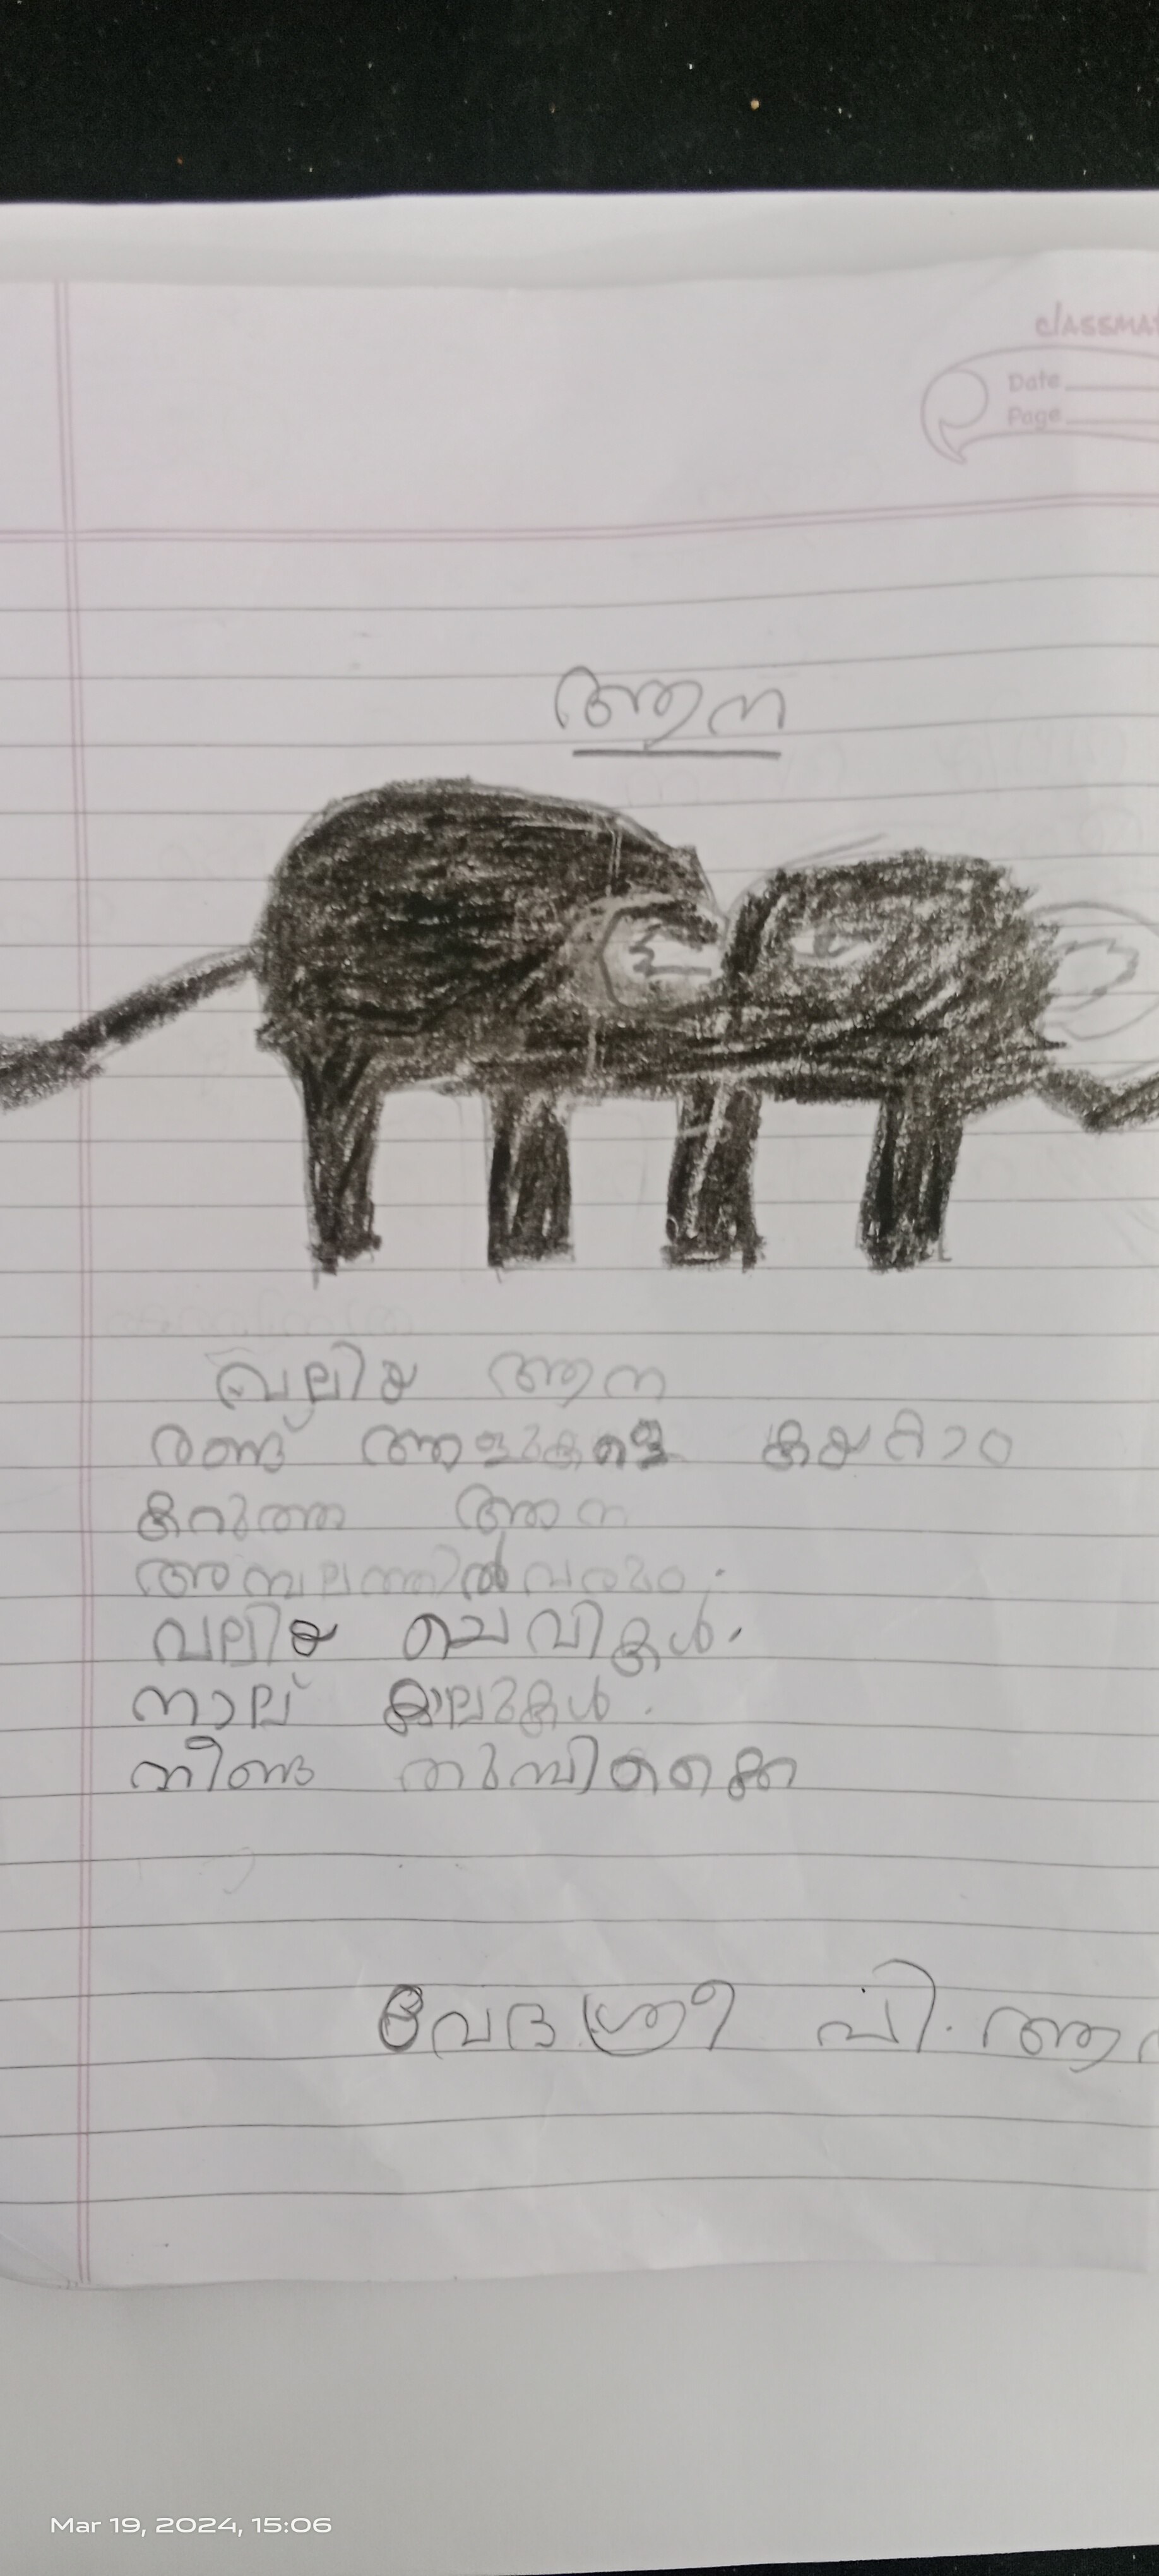 classma
Date
Page
ആന
വലിയ ആന
രണ്ട് ആളുകളെ കയറാം
കറുത്ത ആന
അമ്പലത്തിൽ വരും.
വലിയ ചെവികൾ.
നാല് കാലുകൾ.
നീണ്ട തുമ്പികൈ
വേദശ്രീ പി. ആ
Mar 19, 2024, 15:06